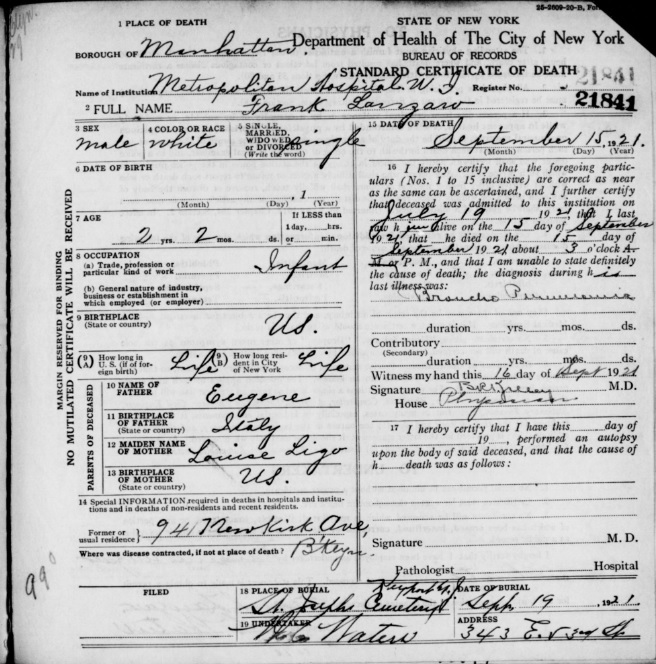 1 PLACE OF DEATH
STATE OF NEW YORK
BOROUGH OF Manhattan.
Department of Health of The City of New York
BUREAU OF RECORDS
STANDARD CERTIFICATE OF DEATH
Name of Institution Metropolitan Hospital. W. I.
Register No. 21841
2 FULL NAME Frank Lanzaro
21841
3 SEX male
4 COLOR OR RACE white
5 SINGLE, MARRIED, WIDOWED or DIVORCED (Write the word) single
6 DATE OF BIRTH
, 1
(Month) (Day) (Year)
7 AGE
If LESS than
1 day, hrs.
2 yrs. 2 mos. ds. or min.
8 OCCUPATION
(a) Trade, profession or
particular kind of work Infant
(b) General nature of industry,
business or establishment in
which employed (or employer)
9 BIRTHPLACE
(State or country) US.
(9A) How long in U. S. (if of foreign birth) Life
(9B) How long resident in City of New York Life
PARENTS OF DECEASED
10 NAME OF FATHER Eugene
11 BIRTHPLACE OF FATHER (State or country) Italy
12 MAIDEN NAME OF MOTHER Louise Ligo
13 BIRTHPLACE OF MOTHER (State or country) US.
14 Special INFORMATION required in deaths in hospitals and institu-
tions and in deaths of non-residents and recent residents.
Former or usual residence } 941 NewKirk Ave,
Where was disease contracted, if not at place of death? B'klyn.
15 DATE OF DEATH
September 15, 1921.
(Month) (Day) (Year)
16 I hereby certify that the foregoing partic-
ulars (Nos. 1 to 15 inclusive) are correct as near
as the same can be ascertained, and I further certify
that deceased was admitted to this institution on
July 19 1921, that I last
saw h im alive on the 15 day of September
1921 that he died on the 15 day of
September 1921 about 3 o'clock A.
M. or P. M., and that I am unable to state definitely
the cause of death; the diagnosis during h is
last illness was:
Broncho Pneumonia
duration yrs. mos. ds.
Contributory
(Secondary)
duration yrs. mos. ds.
Witness my hand this 16 day of Sept 1921
Signature M.D.
House Physician
17 I hereby certify that I have this day of
19 , performed an autopsy
upon the body of said deceased, and that the cause of
h death was as follows:
Signature M. D.
Pathologist Hospital
FILED
18 PLACE OF BURIAL
St. Joseph's Cemetery Keyport N.J.
DATE OF BURIAL
Sept 19 , 1921.
19 UNDERTAKER
Waters
ADDRESS
343 E. 53rd St
MARGIN RESERVED FOR BINDING
NO MUTILATED CERTIFICATE WILL BE RECEIVED
990